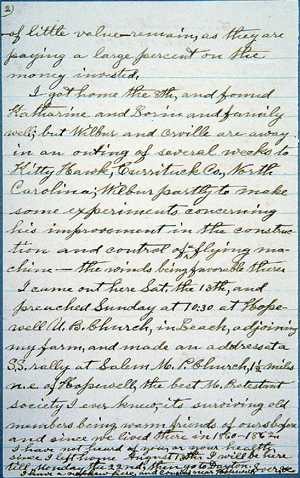 2)
of little value—remain, as they are
paying a large percent on the
money invested.
I got home the 8th, and found
Katharine and Lorin and family
well; but Wilbur and Orville are away
in an outing of several weeks to
Kitty Hawk, Currituck Co., North
Carolina; Wilbur partly to make
some experiments concerning
his improvement in the construc-
tion and control of flying ma-
chine—the winds being favorable there.
I came out here Sat. the 13th, and
preached Sunday at 10:30 at Hope-
well U. B. Church, in Leach, adjoining
my farm, and made an address at a
S.S. rally at Salem M. P. Church, 1½ miles
n.e. of Hopewell, the best M. Protestant
society I ever knew; its surviving old
members being warm friends of ours before
and since we lived there in 1860-1862.
I have not heard of you, or your health,
since I left home August 14th. I will be here
till Monday the 22nd, then go to Dayton.
I have a nephew here, and